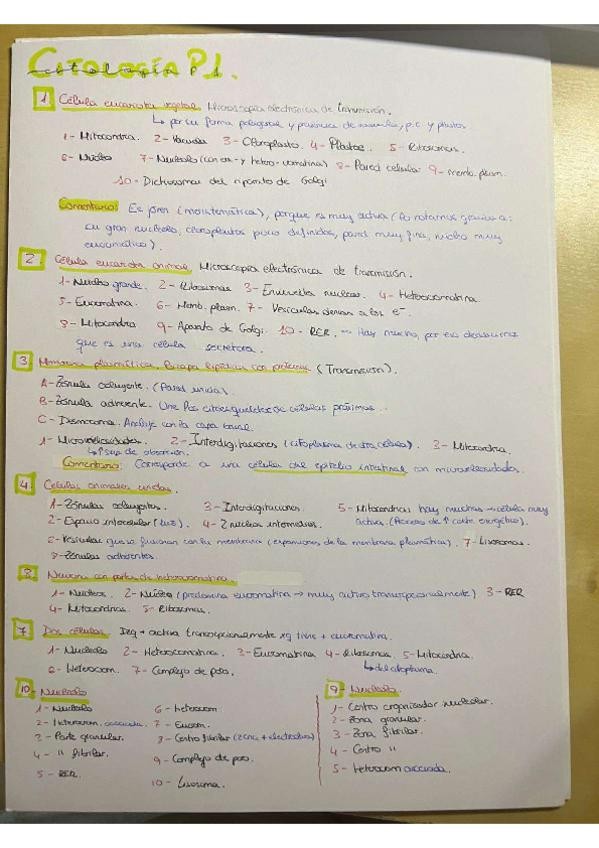 CITOLOGÍA P.1.
1 Célula eucariota vegetal. Microscopía electrónica de transmisión.
↳ por su forma poligonal y presencia de vacuola, p.c. y plastos
1- Mitocondria. 2- Vacuola 3- Cloroplasto. 4- Plastos. 5- Ribosomas.
6- Núcleo 7- Nucleolo (con eu- y hetero-cromatina) 8- Pared celular. 9- memb. plasm.
10- Dictiosomas del aparato de Golgi
Comentario: Es joven (meristemática), porque es muy activa (lo notamos gracias a:
su gran nucleolo, cloroplastos poco definidos, pared muy fina, núcleo muy
eucromático).
2. Célula eucariota animal. Microscopía electrónica de transmisión.
1- Núcleo grande. 2- Ribosomas 3- Envuelta nuclear. 4- Heterocromatina.
5- Eucromatina. 6- Memb. plasm. 7- Vesículas densas a los e⁻.
8- Mitocondria 9- Aparato de Golgi. 10- RER. → Hay mucho, por eso deducimos
que es una célula secretora.
3 Membrana plasmática. Bicapa lipídica con proteínas (Transmisión).
A- Zónula ocluyente. (Pared unida).
B- Zónula adherente. Une los citoesqueletos de células próximas.
C- Desmosoma. Anclaje con la capa basal.
1- Microvellosidades. 2- Interdigitaciones (citoplasma de otra célula). 3- Mitocondria.
↳ ↑ sup. de absorción.
Comentario: Corresponde a una célula del epitelio intestinal con microvellosidades.
4 Células animales unidas.
1- Zónulas ocluyentes. 3- Interdigitaciones. 5- Mitocondrias hay muchas → célula muy
2- Espacio intercelular (luz). 4- 2 núcleos intermedios. activa. (Proceso de ↑ coste energético).
6- Vesículas que se fusionan con la membrana (expansiones de la membrana plasmática). 7- Lisosomas.
8- Zónulas adherentes.
8. Neurona con partes de heterocromatina.
1- Nucleolos. 2- Núcleo (predomina eucromatina → muy activo transcripcionalmente) 3- RER
4- Mitocondrias 5- Ribosomas.
7 Dos células. Izq + activa transcripcionalmente xq tiene + eucromatina.
1- Nucleolo 2- Heterocromatina. 3- Eucromatina 4- Ribosomas 5- Mitocondria.
↳ del citoplasma.
6- Heterocrom. 7- Complejo de poro.
10- Nucleolo
1- Nucleolo
2- Heterocrom. asociada
3- Parte granular.
4- " fibrilar.
5- RER.
6- Heterocrom.
7- Eucrom.
8- Centro fibrilar (zona + electroclara)
9- Complejo de poro.
10- Lisosoma.
9- Nucleolo.
1- Centro organizador nucleolar.
2- Zona granular.
3- Zona fibrilar.
4- Centro "
5- Heterocrom asociada.